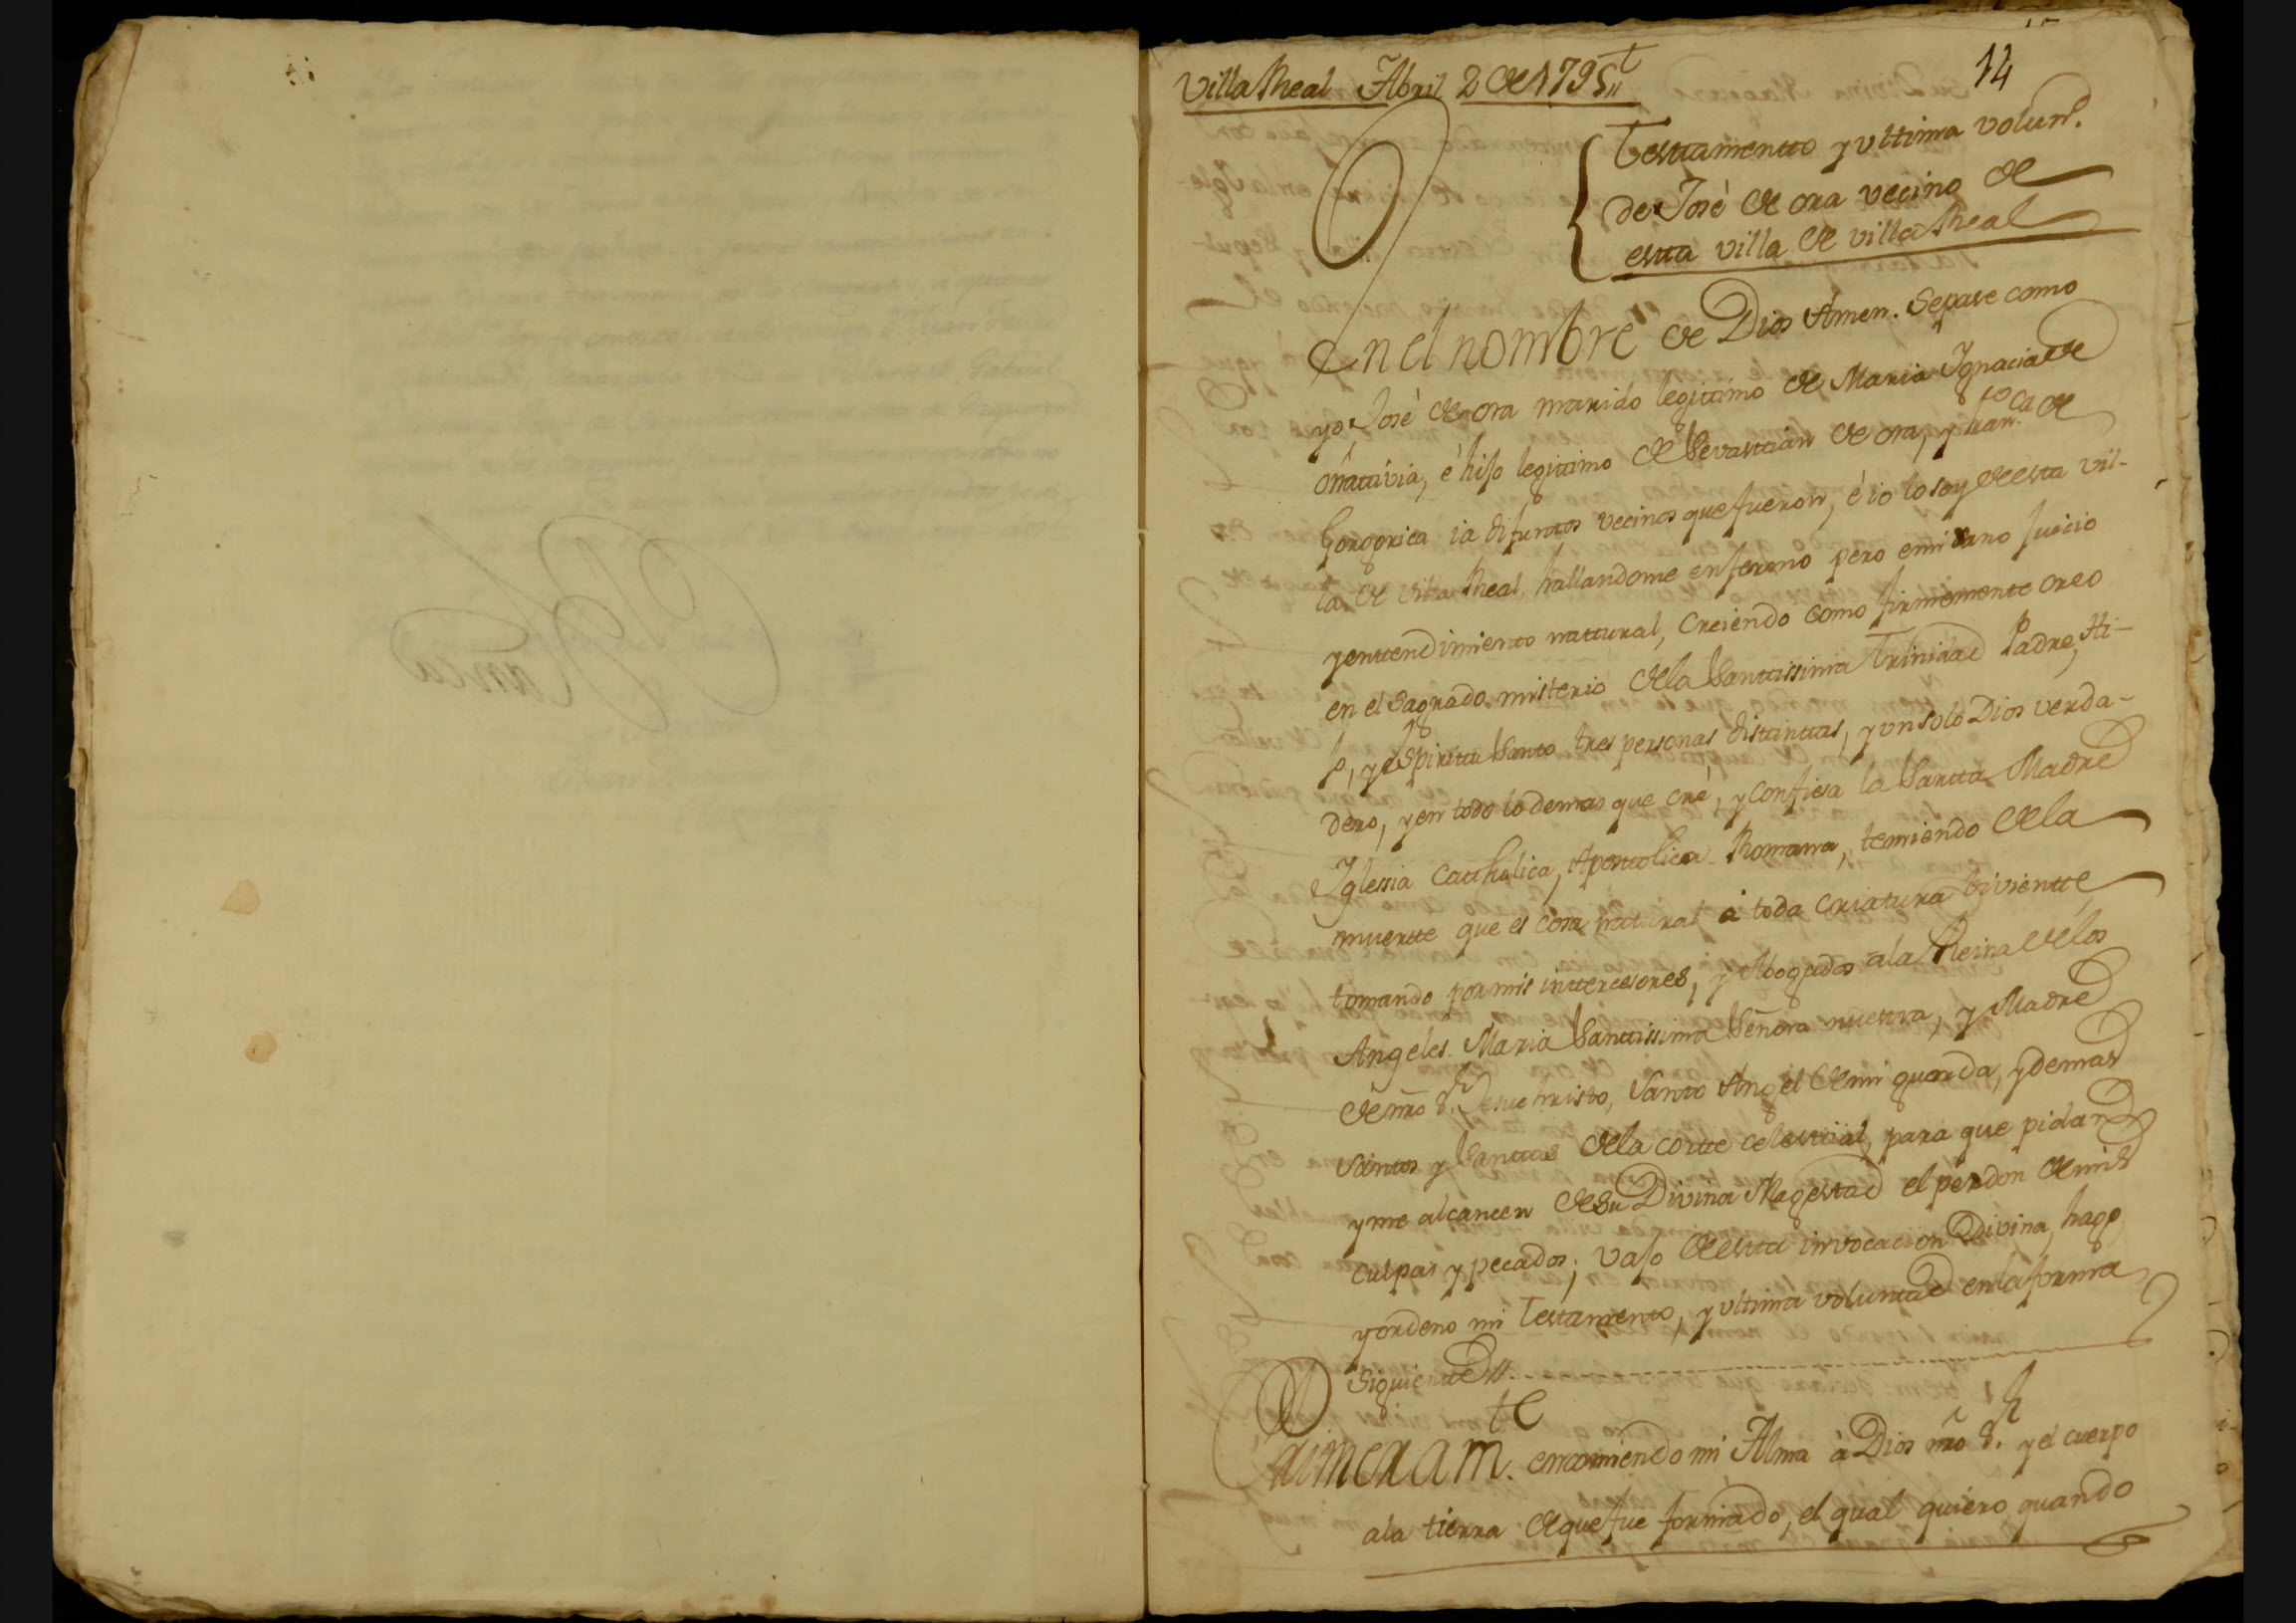 14
Villa Rheal Abril 2 de 1795,,
Testtamentto y vlttima volunt.
de José de ora vecino de
estta villa de villa Rheal
En el nombre de Dios Amen. Sepase como
yo José de ora marido legitimo de Maria Ignacia de
Oñattivia, é hijo legitimo de Sevasttian de ora, y Fran.ca de
Gorgorica ia difuntos vecinos que fueron, é io lo soy de esta vil-
la de Villa Rheal, hallandome enfermo pero en mi sano juicio
y enttendimiento nattural, Creiendo como firmemente creo
en el Sagrado misterio de la Santtissima Trinidad Padre, Hi-
jo, y espirittu Santo tres personas disttinttas, y vn solo Dios verda-
dero, y en todo lo demas que cré, y confiesa la Santta Madre
Iglesia Catthòlica, Aposttolica Romana, temiendo de la
muertte que es cosa natural á toda criatura viviente,
tomando por mis inttercesores, y Abogados a la Rheina de los
Angeles Maria Santtissima Señora nuestra, y Madre
de nrô S.r Jesuchristo, Santo Angel de mi guarda, y demas
Santos y Santtas de la Cortte celesttial, para que pidan
y me alcancen de su Divina Magesttad el perdon de mis
culpas y pecados; vajo de estta invocacion Divina, hago
y ordeno mi Testamento, y vltima voluntad en la forma
Siguientte //.
Primeram.te encomiendo mi Alma à Dios nrô S.r y el cuerpo
a la tierra de que fue formado, el qual quiero quando